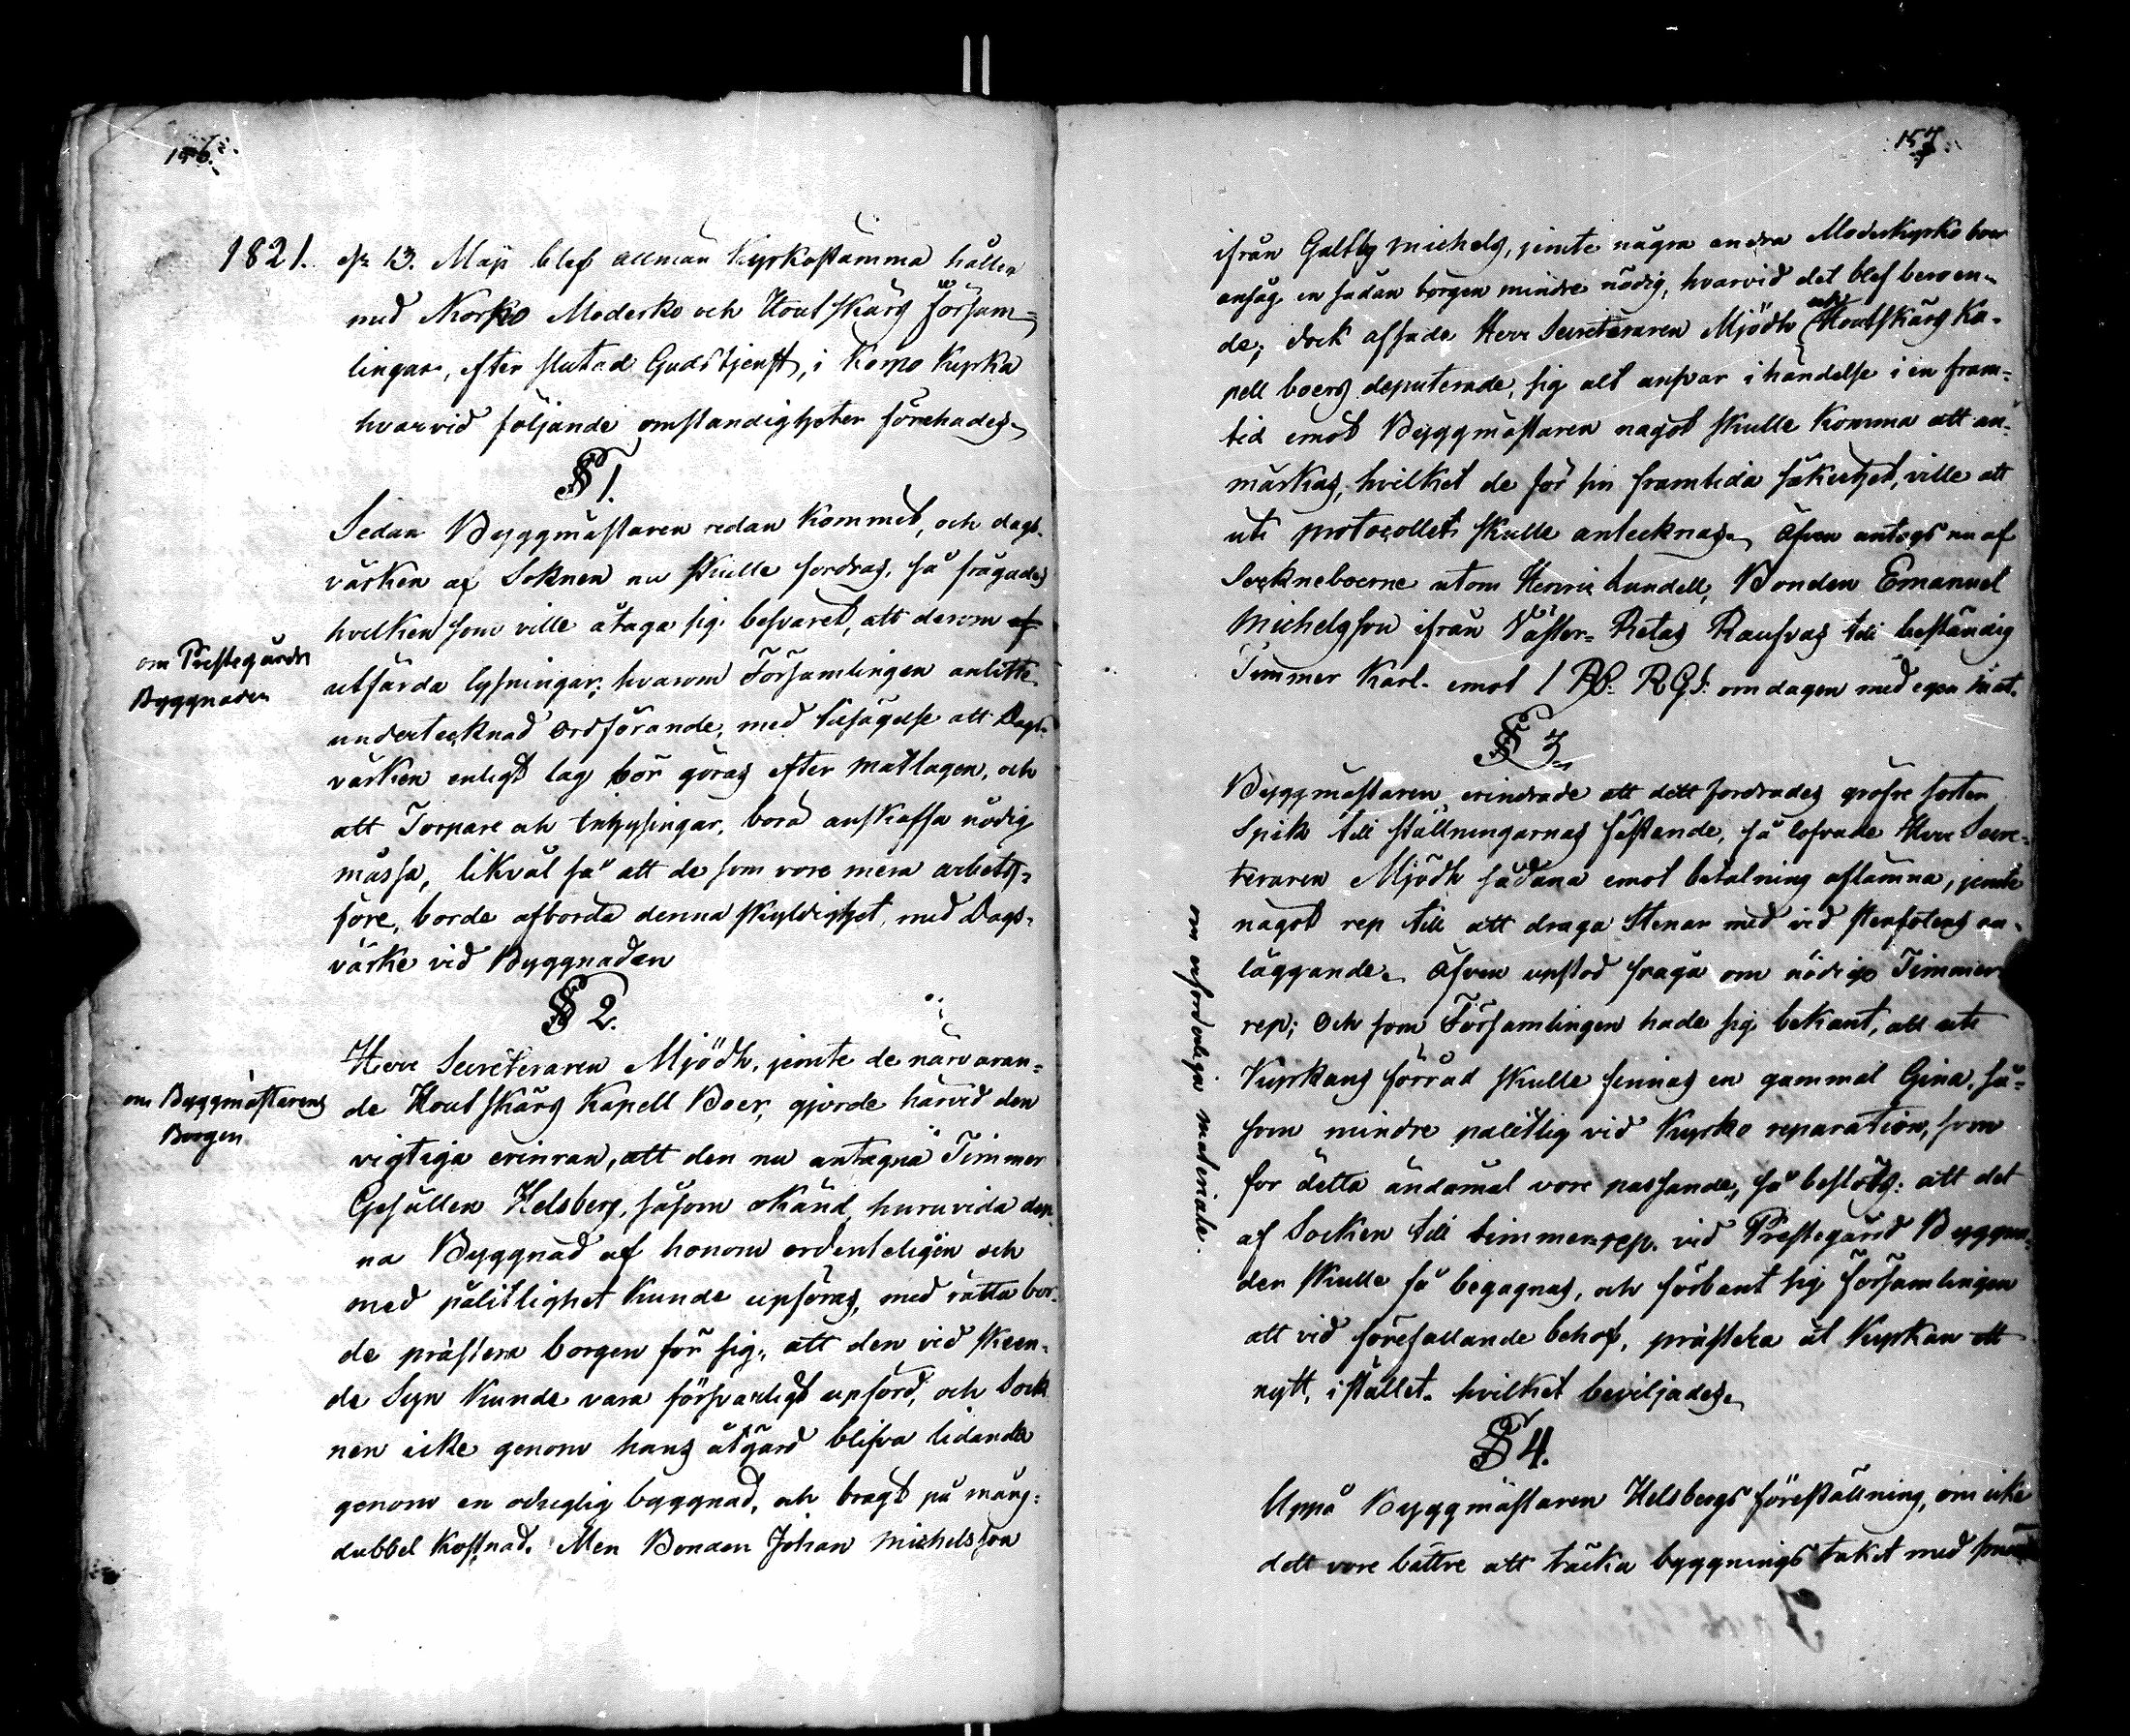 156.
1821. d. 13. Maji blef allmän Kyrkostämma hållen
med Korpo Moderko och Houtskärs försam=
lingar, efter slutad Gudstjenst, i Korpo Kyrka
hvarvid följande omständigheter förehades.
§ 1.
om Prestegårds
Byggnaden
Sedan Byggmästaren redan Kommit, och dags-
värken af Soknen nu skulle fordras, så frågades
hvilken som ville åtaga sig besväret, att derom af
utfärda lysningar; hvarom Församlingen anlitte
undertecknad Ordförande, med tilsägelse att Dags-
värken enligt lag bör göras efter matlagen, och
att Torpare och Inhysingar, bora anskaffa nödig
mässa, likväl så att de som vore mera arbets=
före, borde afborda denna skyldighet, med Dags=
värke vid Byggnaden
§ 2.
om Byggmästarens
Borgen
Herr Secreteraren Mjödh, jemte de närvaran=
de Houtskärs Kapell Boer, gjorde härvid den
vigtiga erinran, att den nu antagna Timmer
Gesällen Helsberg, såsom okänd, huruvida den-
na Byggnad af honom ordenteligen och
med pålitlighet kunde upföras, med rätta bor-
de prästera borgen för sig, att den vid skeen-
de Syn kunde vara försvarligt upförd, och Sock
nen icke genom hans åtgärd blifva lidande
genom en oduglig byggnad, och bragt på mång=
dubbel Kostnad. Men Bonden Johan Michelsson
157.
ifrån Galtby Michels, jemte några andra Moderkyrko boer
ansåg en sådan borgen mindre nödig, hvarvid det blef beroen-
de; dock afsade Herr Secreteraren Mjödh och Houtskärs Ka-
pell boers deputerade, sig alt ansvar i händelse i en fram=
tid emot Byggmästaren något skulle komma att an=
märkas, hvilket de för sin framtida säkerhet, ville att
uti protocollet skulle antecknas. Äfven antogs nu af
Sockneboerne utom Henric Lundell, Bonden Emanuel
Michelsson ifrån Väster- Retas Raufvas till beständig
Timmer Karl. emot 1 Rb. RGs. om dagen med egen mat.
§ 3.
om erforderliga materiale.
Byggmästaren erindrade att dett fordrades gröfre sorten
Spik till ställningarnas fästende, så lofvade Herr Secre-
teraren Mjödh sådana emot betalning aflämna, jemte
något rep till att draga Stenar med vid stenfotens an-
läggande. Äfven upstod fråga om nödigt Timmer
rep; Och som Församlingen hade sig bekant, att uti
Kyrkans förråd skulle finnas en gammal Gina, så=
som mindre pålitlig vid Kyrko reparation, som
för detta ändamål vore passande, så beslöts: att det
af Socken till timmer rep. vid Prestegård Byggna-
den skulle få begagnas, och förbant sig församlingen
att vid förefallande behof, prästera åt Kyrkan ett
nytt, i stället. hvilket beviljades.
§ 4.
Uppå Byggmästaren Helsbergs föreställning, om icke
dett vore bättre att täcka byggnings taket med